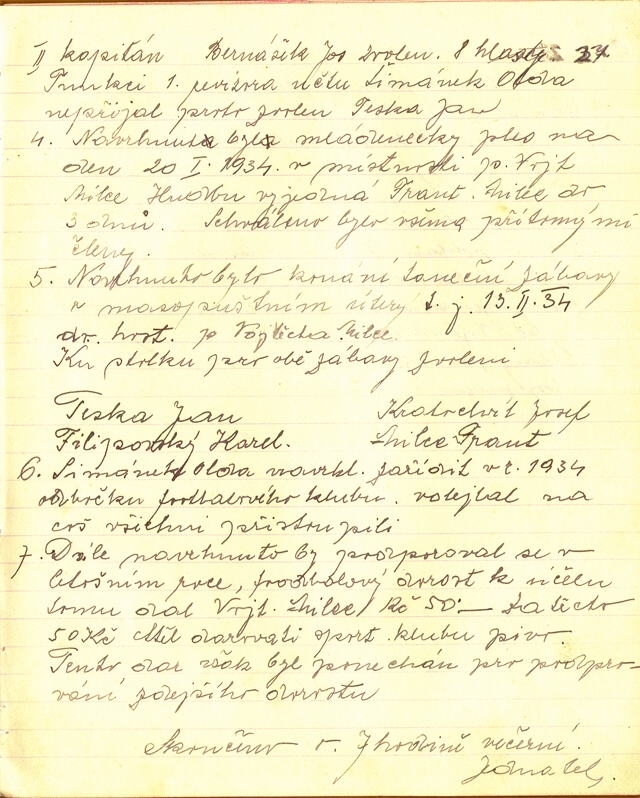 II kapitán Bernášek Jos zvolen. 8 hlasy 37
Funkci 1. revizora účtu Šimánek Olda
nepřijal proto zvolen Teska Jan
4. Navrhnut byl mládenecký ples na
den 20 I. 1934. v místnosti p. Vojt
Milce Hudbu vyjedná Frant. Milec do
3 dnů. Schváleno bylo všema přítomnými
členy.
5. Navrhnuto bylo konání taneční zábavy
v masopustním úterý t. j. 13. II. 34
do. host. p Vojtěcha Milce.
Ku stolku pro obě zábavy zvoleni
Teska Jan Kratochvíl Josef
Filipovský Karel. Milec Frant
6. Šimánek Olda navrhl. zařídit v r. 1934
odbočku footbalového klubu. volejbal na
což všichni přistoupili
7. Dále navrhnuto by podporoval se v
letošním roce, footbalový dorost k účelu
tomu dal Vojt. Milec Kč 50·— Za těchto
50 Kč chtěl darovati sport. klubu pivo.
Tento dar však byl ponechán pro podpo-
rování zdejšího dorostu
Skončeno o. 7 hodině večerní.
Jednatel.